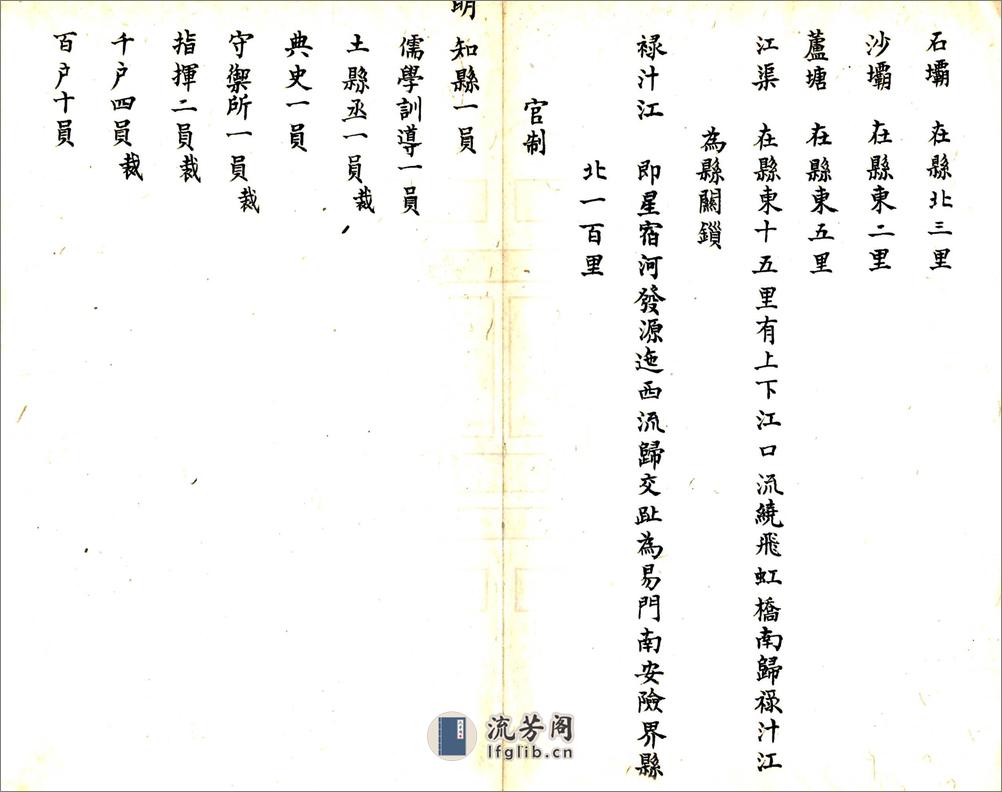 石壩　在縣北三里
沙壩　在縣東二里
蘆塘　在縣東五里
江渠　在縣東十五里有上下江口流繞飛虹橋南歸祿汁江
為縣關鎖
祿汁江　即星宿河發源迤西流歸交趾為易門南安險界縣
北一百里
官制
明　知縣一員
儒學訓導一員
土縣丞一員裁
典史一員
守禦所一員裁
指揮二員裁
千户四員裁
百户十員
流芳阁
lfglib.cn